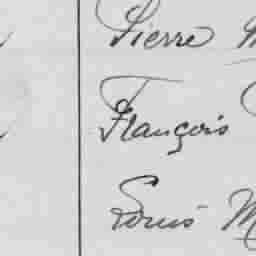 Pierre M
François
Louis M